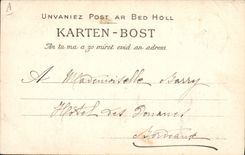 UNVANIEZ POST AR BED HOLL
KARTEN-BOST
An tu ma a zo miret evid an adress
A Mademoiselle Barry
Hôtel des Douanes
Bordeaux